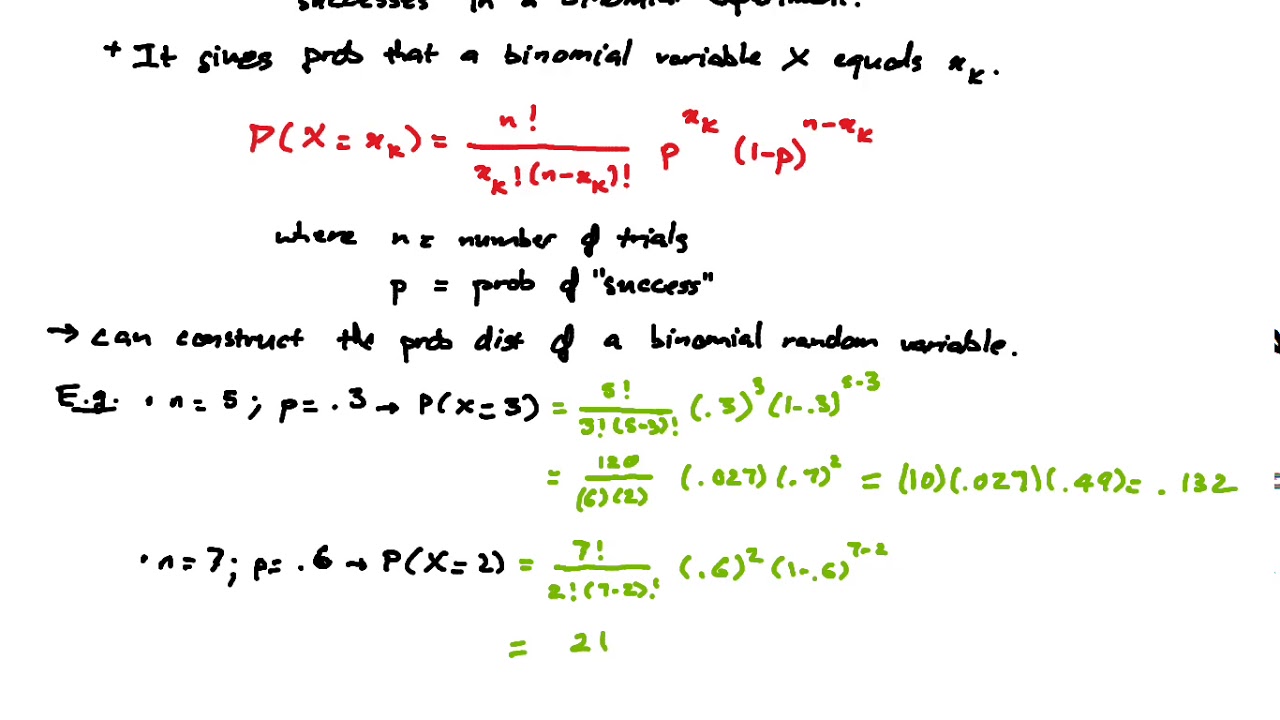 successes in a binomial experiment.
+ It gives prob that a binomial variable X equals x_k.
P(X = x_k) = n! / x_k!(n-x_k)! p^x_k (1-p)^n-x_k
where n = number of trials
p = prob of "success"
→ can construct the prob dist of a binomial random variable.
E.g. · n = 5; p = .3 → P(X = 3) = 5! / 3!(5-3)! (.3)^3 (1-.3)^5-3
= 120 / (6)(2) (.027)(.7)^2 = (10)(.027)(.49) = .132
· n = 7; p = .6 → P(X = 2) = 7! / 2!(7-2)! (.6)^2 (1-.6)^7-2
= 21